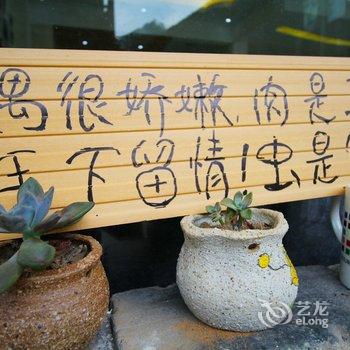 偶很娇嫩,肉是
手下留情!虫是
艺龙
eLong